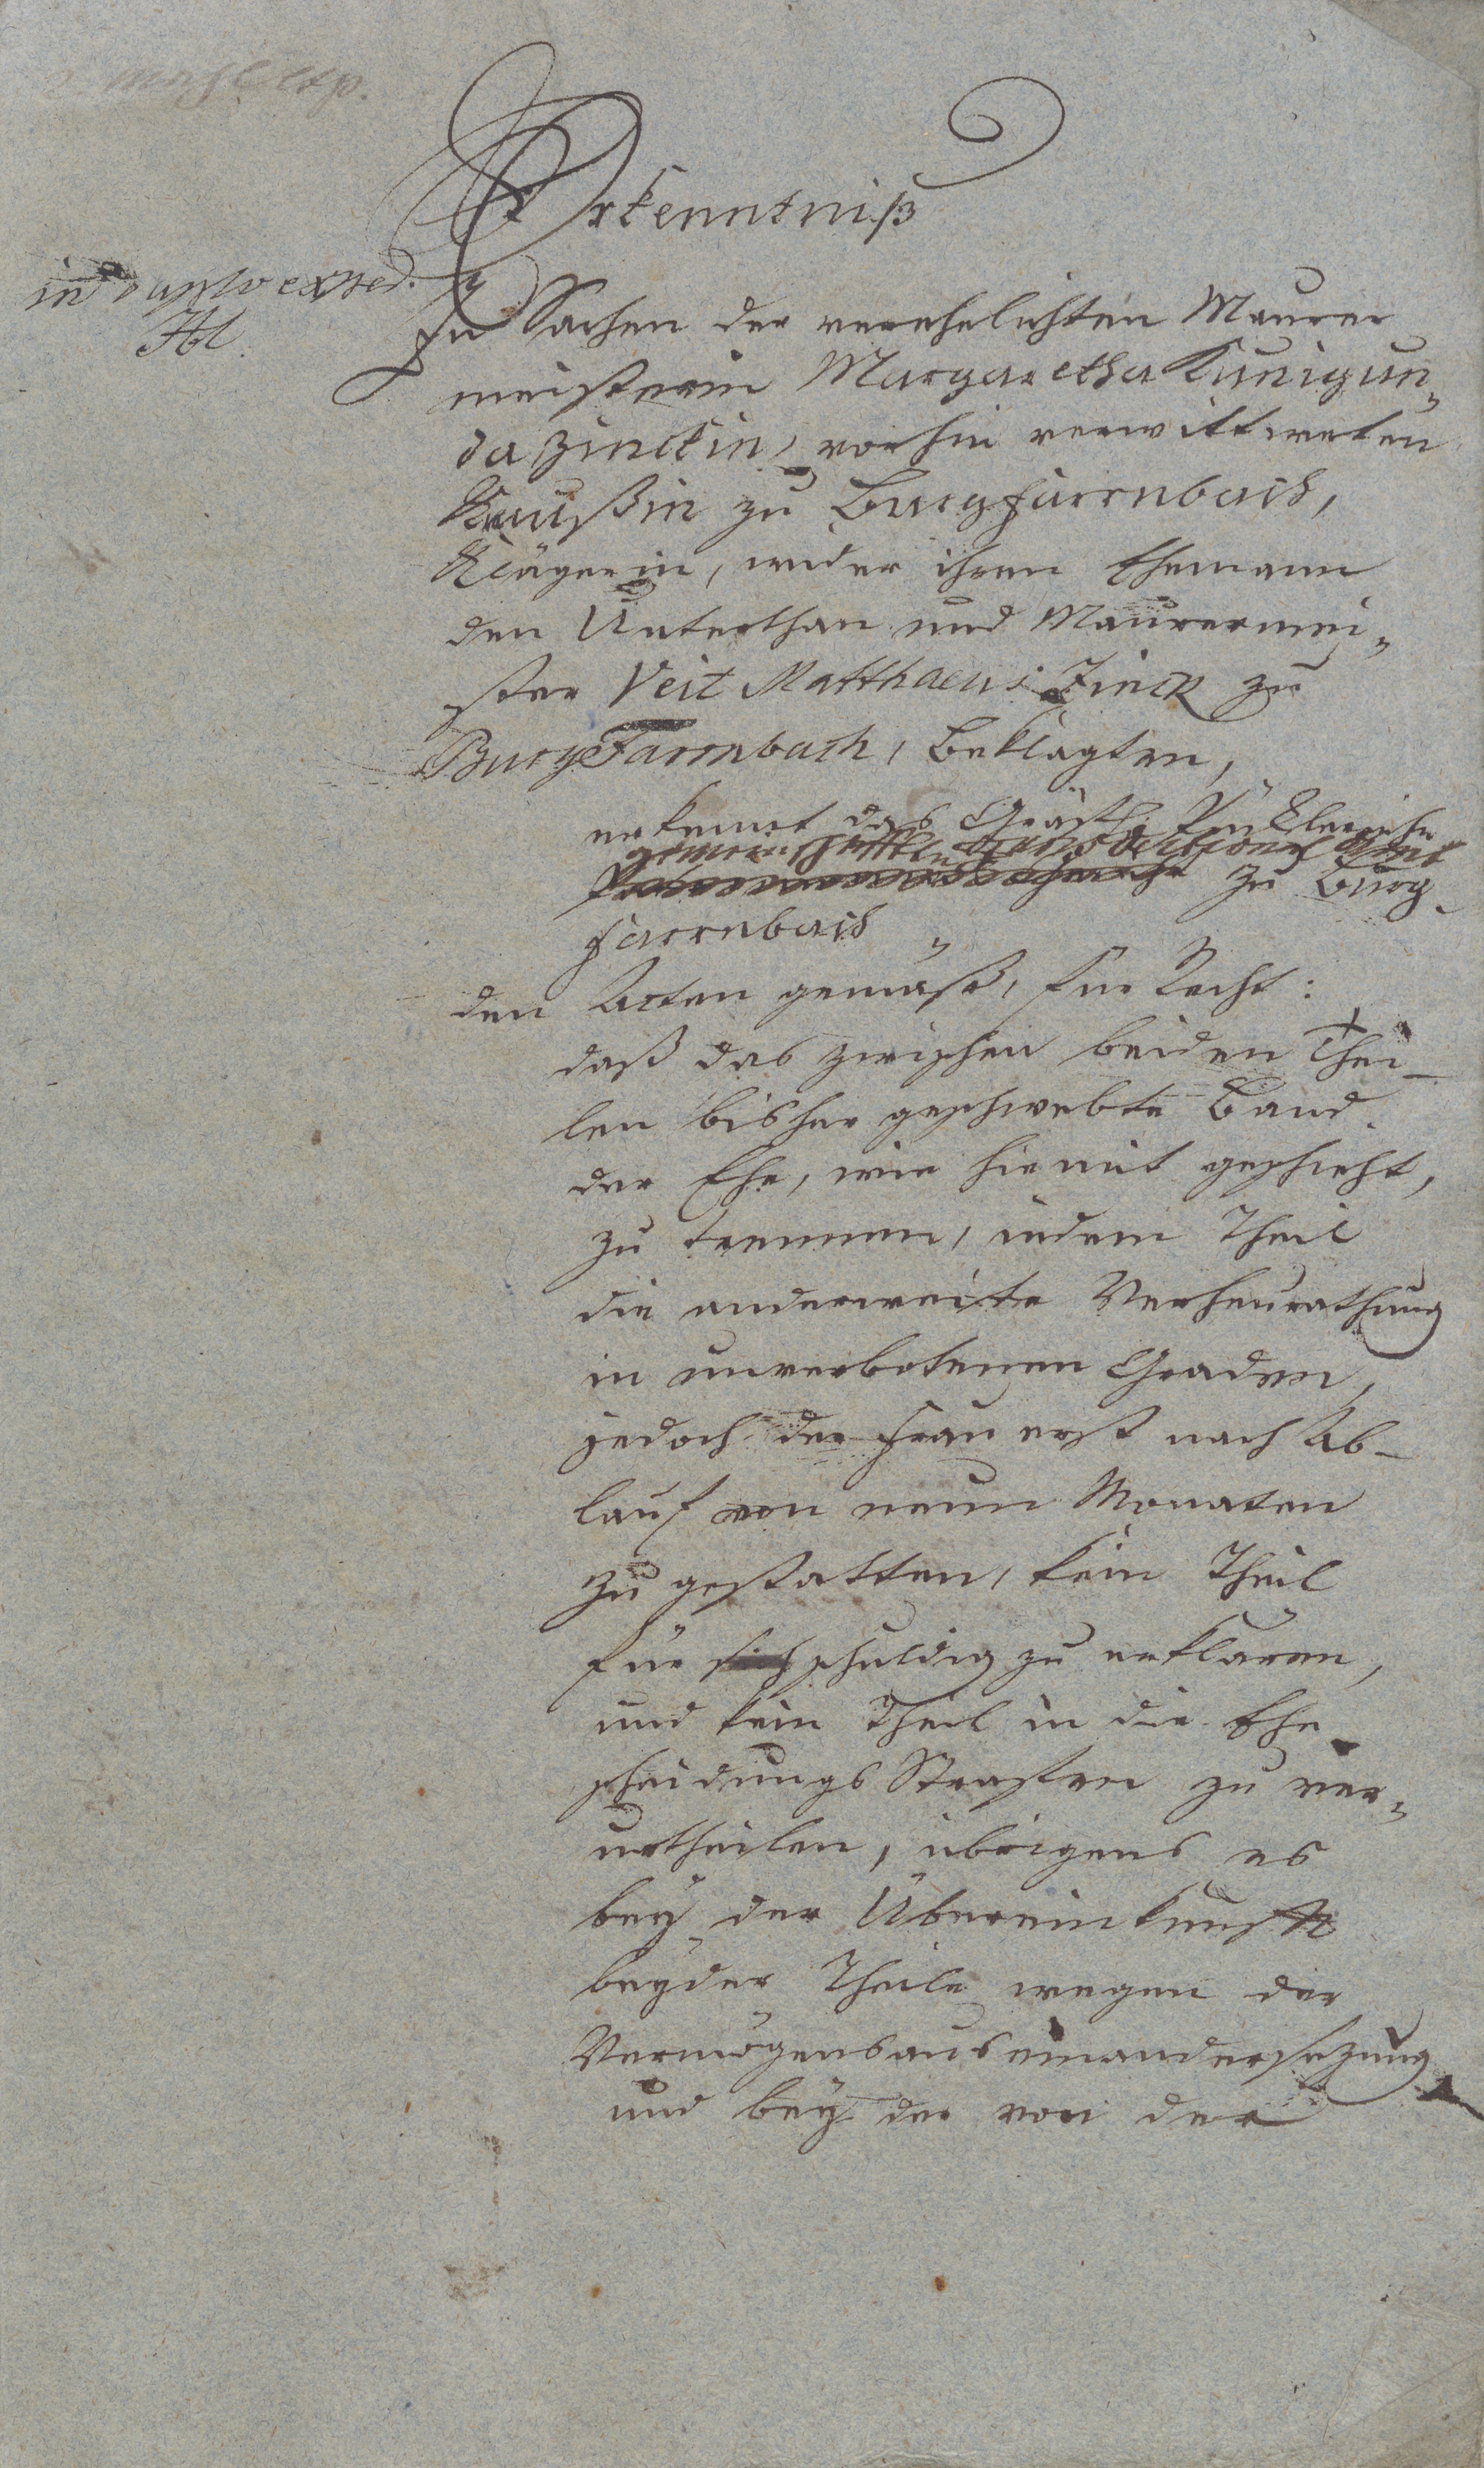 Erkenntniß
in duplo exped.
In Sachen der verehelichten Maurer
meisterin Margaretha Kunigun„
da Zinckin, vorhin verwittweten
Kraußin zu Burgfarrnbach,
Klägerin, wider ihren Ehemann
den Unterthan und Maurermei„
ster Veit Matthaeus Zinck zu
BurgFarrnbach, Beklagten,
erkennt das Gräfl. Pücklerische
gemeinschaftliche Jurisdictions Amt
zu Burg
farrnbach
den Acten gemäß, für Recht:
daß das zwischen beiden Thei-
len bisher geschwebte Band
der Ehe, wie hiemit geschieht,
zu trennen, iedem Theil
die anderweite Verheurathung
in unverbotenen Graden,
jedoch der Frau erst nach Ab-
lauf von neun Monaten
zu gestatten, kein Theil
für schuldig zu erklären,
und kein Theil in die Ehe
scheidungs Straffen zu ver„
urtheilen, übrigens es
bey der Übereinkunft
beyder Theile wegen der
Vermögensauseinandersezung
und bey der von der